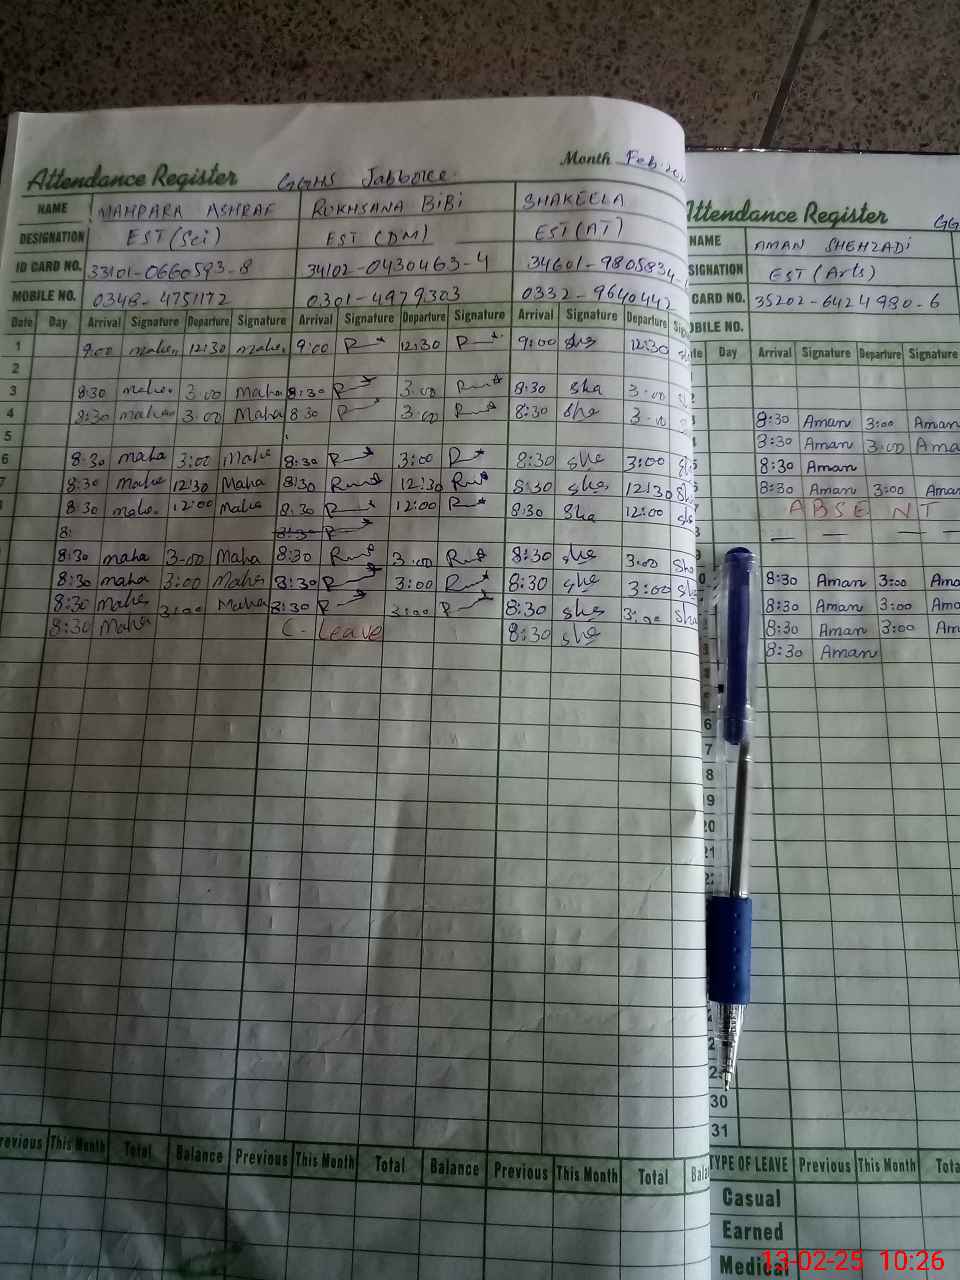 Attendance Register GGHS Month Feb
NAME MAHPARA ASHRAF RUKHSANA BiBi SHAKEELA
DESIGNATION EST (Sci) EST (DM) EST (AT)
ID CARD NO. 33101-0660593-8 34102-0430463-4 34601-9805834
MOBILE NO. 0348-4751172 0301-4979303 0332-9640442
Date Day Arrival Signature Departure Signature Arrival Signature Departure Signature Arrival Signature Departure
1 9:00 12:30 9:00 R 12:30 R 9:00 she 12:30
2
3 8:30 3:00 Maha 8:30 R 3:00 8:30 sha 3:00
4 8:30 3:00 Maha 8:30 R 3:00 8:30 she 3:00
5
6 8:30 maha 3:00 8:30 R 3:00 R 8:30 she 3:00
7 8:30 12:30 Maha 8:30 12:30 8:30 she 12:30
8:30 12:00 8:30 R 12:00 R 8:30 Sha 12:00
8: 8:30 R
8:30 maha 3:00 Maha 8:30 3:00 8:30 she 3:00
8:30 maha 3:00 8:30 R 3:00 R 8:30 she 3:00
8:30 3:00 8:30 R 3:00 R 8:30 she 3:00
8:30 Maha C. Leave 8:30 she
revious This Month Total Balance Previous This Month Total Balance Previous This Month Total Bala
ttendance Register GG
NAME AMAN SHEHZADI
SIGNATION EST (Arts)
CARD NO. 35202-6424980-6
OBILE NO.
te Day Arrival Signature Departure Signature
8:30 Aman 3:00 Aman
8:30 Aman 3:00 Ama
8:30 Aman
8:30 Aman 3:00 Aman
ABSENT
8:30 Aman 3:00 Ama
8:30 Aman 3:00 Ama
8:30 Aman 3:00 Am
8:30 Aman
6
7
8
9
20
21
2
30
31
TYPE OF LEAVE Previous This Month Tota
Casual
Earned
Medical
13-02-25 10:26